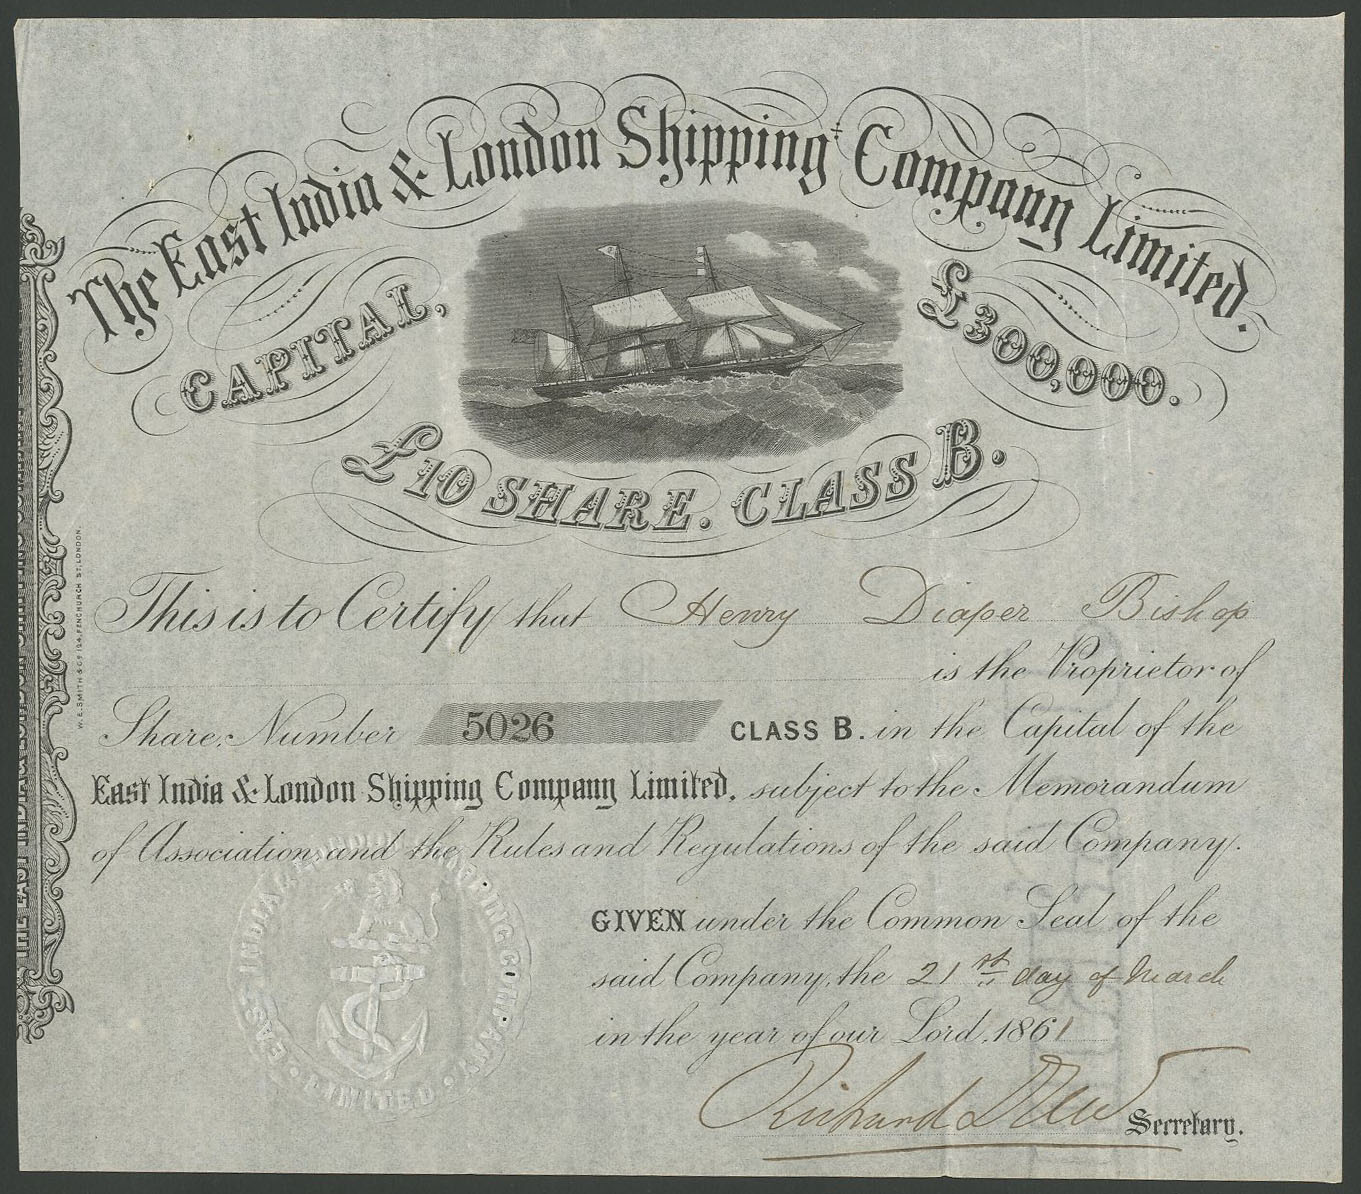 The East India & London Shipping Company Limited.
CAPITAL, £300,000.
£10 SHARE. CLASS B.
This is to Certify that Henry Diaper Bishop
is the Proprietor of
Share, Number 5026 CLASS B. in the Capital of the
East India & London Shipping Company Limited, subject to the Memorandum
of Association and the Rules and Regulations of the said Company.
GIVEN under the Common Seal of the
said Company, the 21st day of March
in the year of our Lord, 1861
Richard Secretary.
EAST INDIA & LONDON SHIPPING COMPANY
LIMITED
W. E. SMITH & Co. 124, FENCHURCH ST. LONDON.